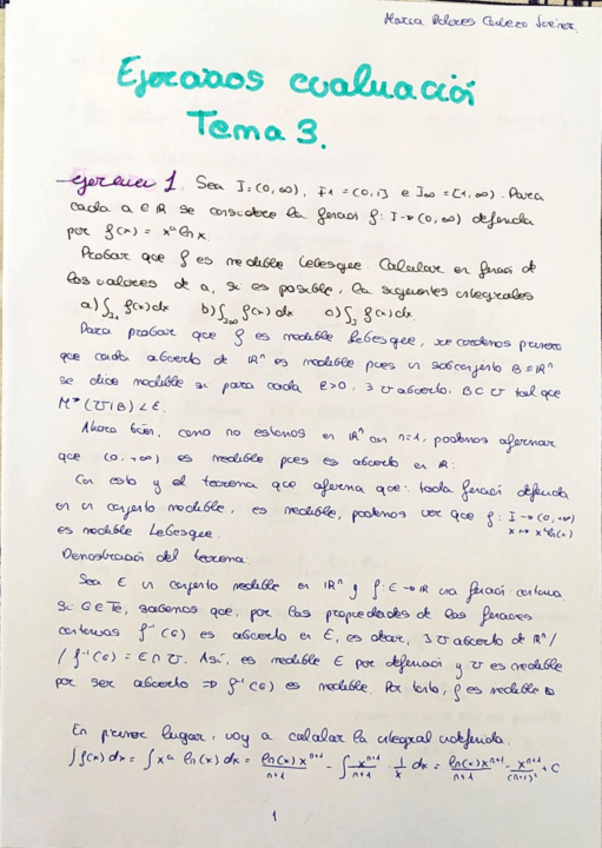 Ejercicios evaluación
Tema 3.
Ejercicio 1. Sea I=(0,∞), I1=(0,1] e I∞=[1,∞). Para
cada a ∈ ℝ se considere la función f: I→(0,∞) definida
por f(x) = xᵃ ln x.
Probar que f es medible Lebesgue. Calcular en función de
los valores de a, si es posible, las siguientes integrales
a) ∫ f(x)dx b) ∫ f(x)dx c) ∫ f(x)dx.
Para probar que f es medible Lebesgue, recordemos primero
que cada abierto de ℝⁿ es medible pues un subconjunto B⊂ℝⁿ
se dice medible si para cada ε>0, ∃ U abierto, B⊂U tal que
M*(U\B) < ε.
Ahora bien, como no estamos en ℝⁿ con n=1, podemos afirmar
que (0,+∞) es medible pues es abierto en ℝ.
Con esto y el teorema que afirma que: toda función definida
en un conjunto medible, es medible, podemos ver que f: I→(0,+∞)
x↦xᵃln(x)
es medible Lebesgue.
Demostración del teorema:
Sea E un conjunto medible en ℝⁿ y f: E→ℝ una función continua.
Si G∈Te, sabemos que, por las propiedades de las funciones
continuas f⁻¹(G) es abierto en E, es decir, ∃ U abierto de ℝⁿ/
/ f⁻¹(G) = E∩U. Así, es medible E por definición y U es medible
por ser abierto ⇒ f⁻¹(G) es medible. Por tanto, f es medible
En primer lugar, voy a calcular la integral indefinida.
∫f(x)dx = ∫xᵃ ln(x) dx = ln(x)xⁿ⁺¹/n+1 - ∫ xⁿ⁺¹/n+1 · 1/x dx = ln(x)xⁿ⁺¹/n+1 - xⁿ⁺¹/(n+1)² + C
1